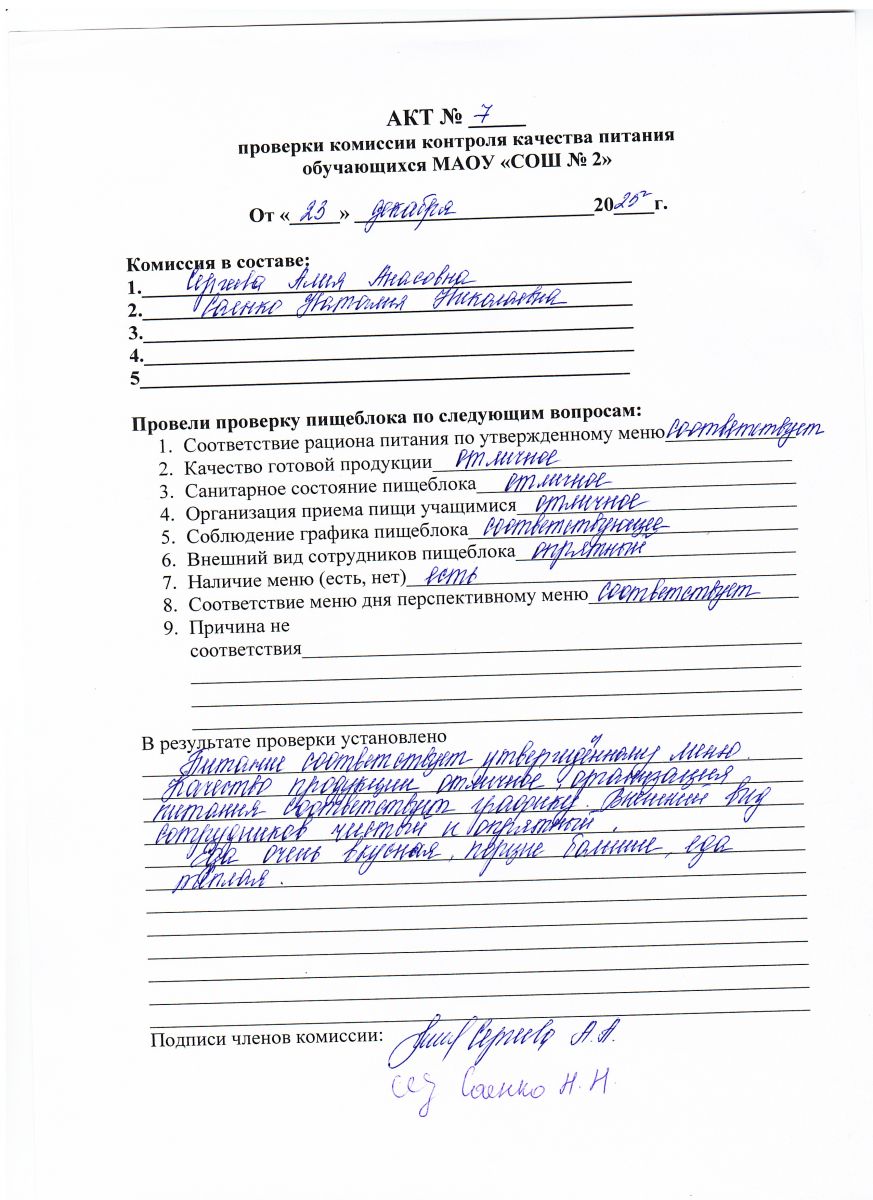 АКТ № 7
проверки комиссии контроля качества питания
обучающихся МАОУ «СОШ № 2»
От «23» декабря 2025г.
Комиссия в составе:
1. Сергеева Алия Анасовна
2. Саенко Наталия Николаевна
3.
4.
5
Провели проверку пищеблока по следующим вопросам:
1. Соответствие рациона питания по утвержденному меню соответствует
2. Качество готовой продукции отличное
3. Санитарное состояние пищеблока отличное
4. Организация приема пищи учащимися отличное
5. Соблюдение графика пищеблока соответствующее
6. Внешний вид сотрудников пищеблока опрятный
7. Наличие меню (есть, нет) есть
8. Соответствие меню дня перспективному меню соответствует
9. Причина не
соответствия
В результате проверки установлено
Питание соответствует утверждённому меню.
Качество продукции отличное, организация
питания соответствует графику. Внешний вид
сотрудников чистый и опрятный.
Еда очень вкусная, порции большие, еда
тёплая.
Подписи членов комиссии: Сергеева А.А.
Саенко Н.Н.